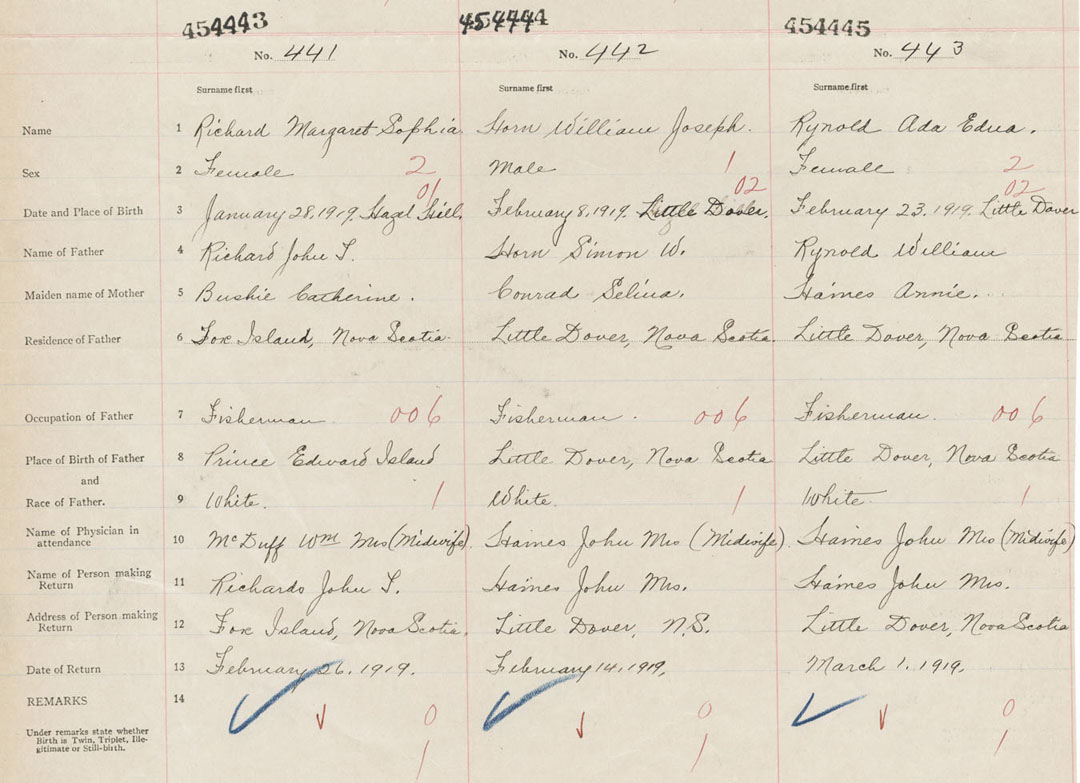 454443 454444 454445
No. 441 No. 442 No. 443
Surname first Surname first Surname first
Name 1 Richard Margaret Sophia. Horn William Joseph. Rynold Ada Edna.
Sex 2 Female 2 Male 1 Female 2
01 02 02
Date and Place of Birth 3 January 28, 1919. Hazel Hill. February 8, 1919. Little Dover. February 23, 1919. Little Dover
Name of Father 4 Richard John T. Horn Simon W. Rynold William
Maiden name of Mother 5 Bushie Catherine. Conrad Selina. Haines Annie.
Residence of Father 6 Fox Island, Nova Scotia. Little Dover, Nova Scotia. Little Dover, Nova Scotia
Occupation of Father 7 Fisherman 006 Fisherman. 006 Fisherman. 006
Place of Birth of Father 8 Prince Edward Island Little Dover, Nova Scotia Little Dover, Nova Scotia
and
Race of Father. 9 White. 1 White. 1 White 1
Name of Physician in
attendance 10 McDuff Wm Mrs (Midwife). Haines John Mrs (Midwife). Haines John Mrs (Midwife)
Name of Person making
Return 11 Richards John T. Haines John Mrs. Haines John Mrs.
Address of Person making
Return 12 Fox Island, Nova Scotia. Little Dover, N.S. Little Dover, Nova Scotia
Date of Return 13 February 26, 1919. February 14, 1919. March 1, 1919.
REMARKS 14
0 0 0
Under remarks state whether
Birth is Twin, Triplet, Ille-
gitimate or Still-birth. 1 1 1